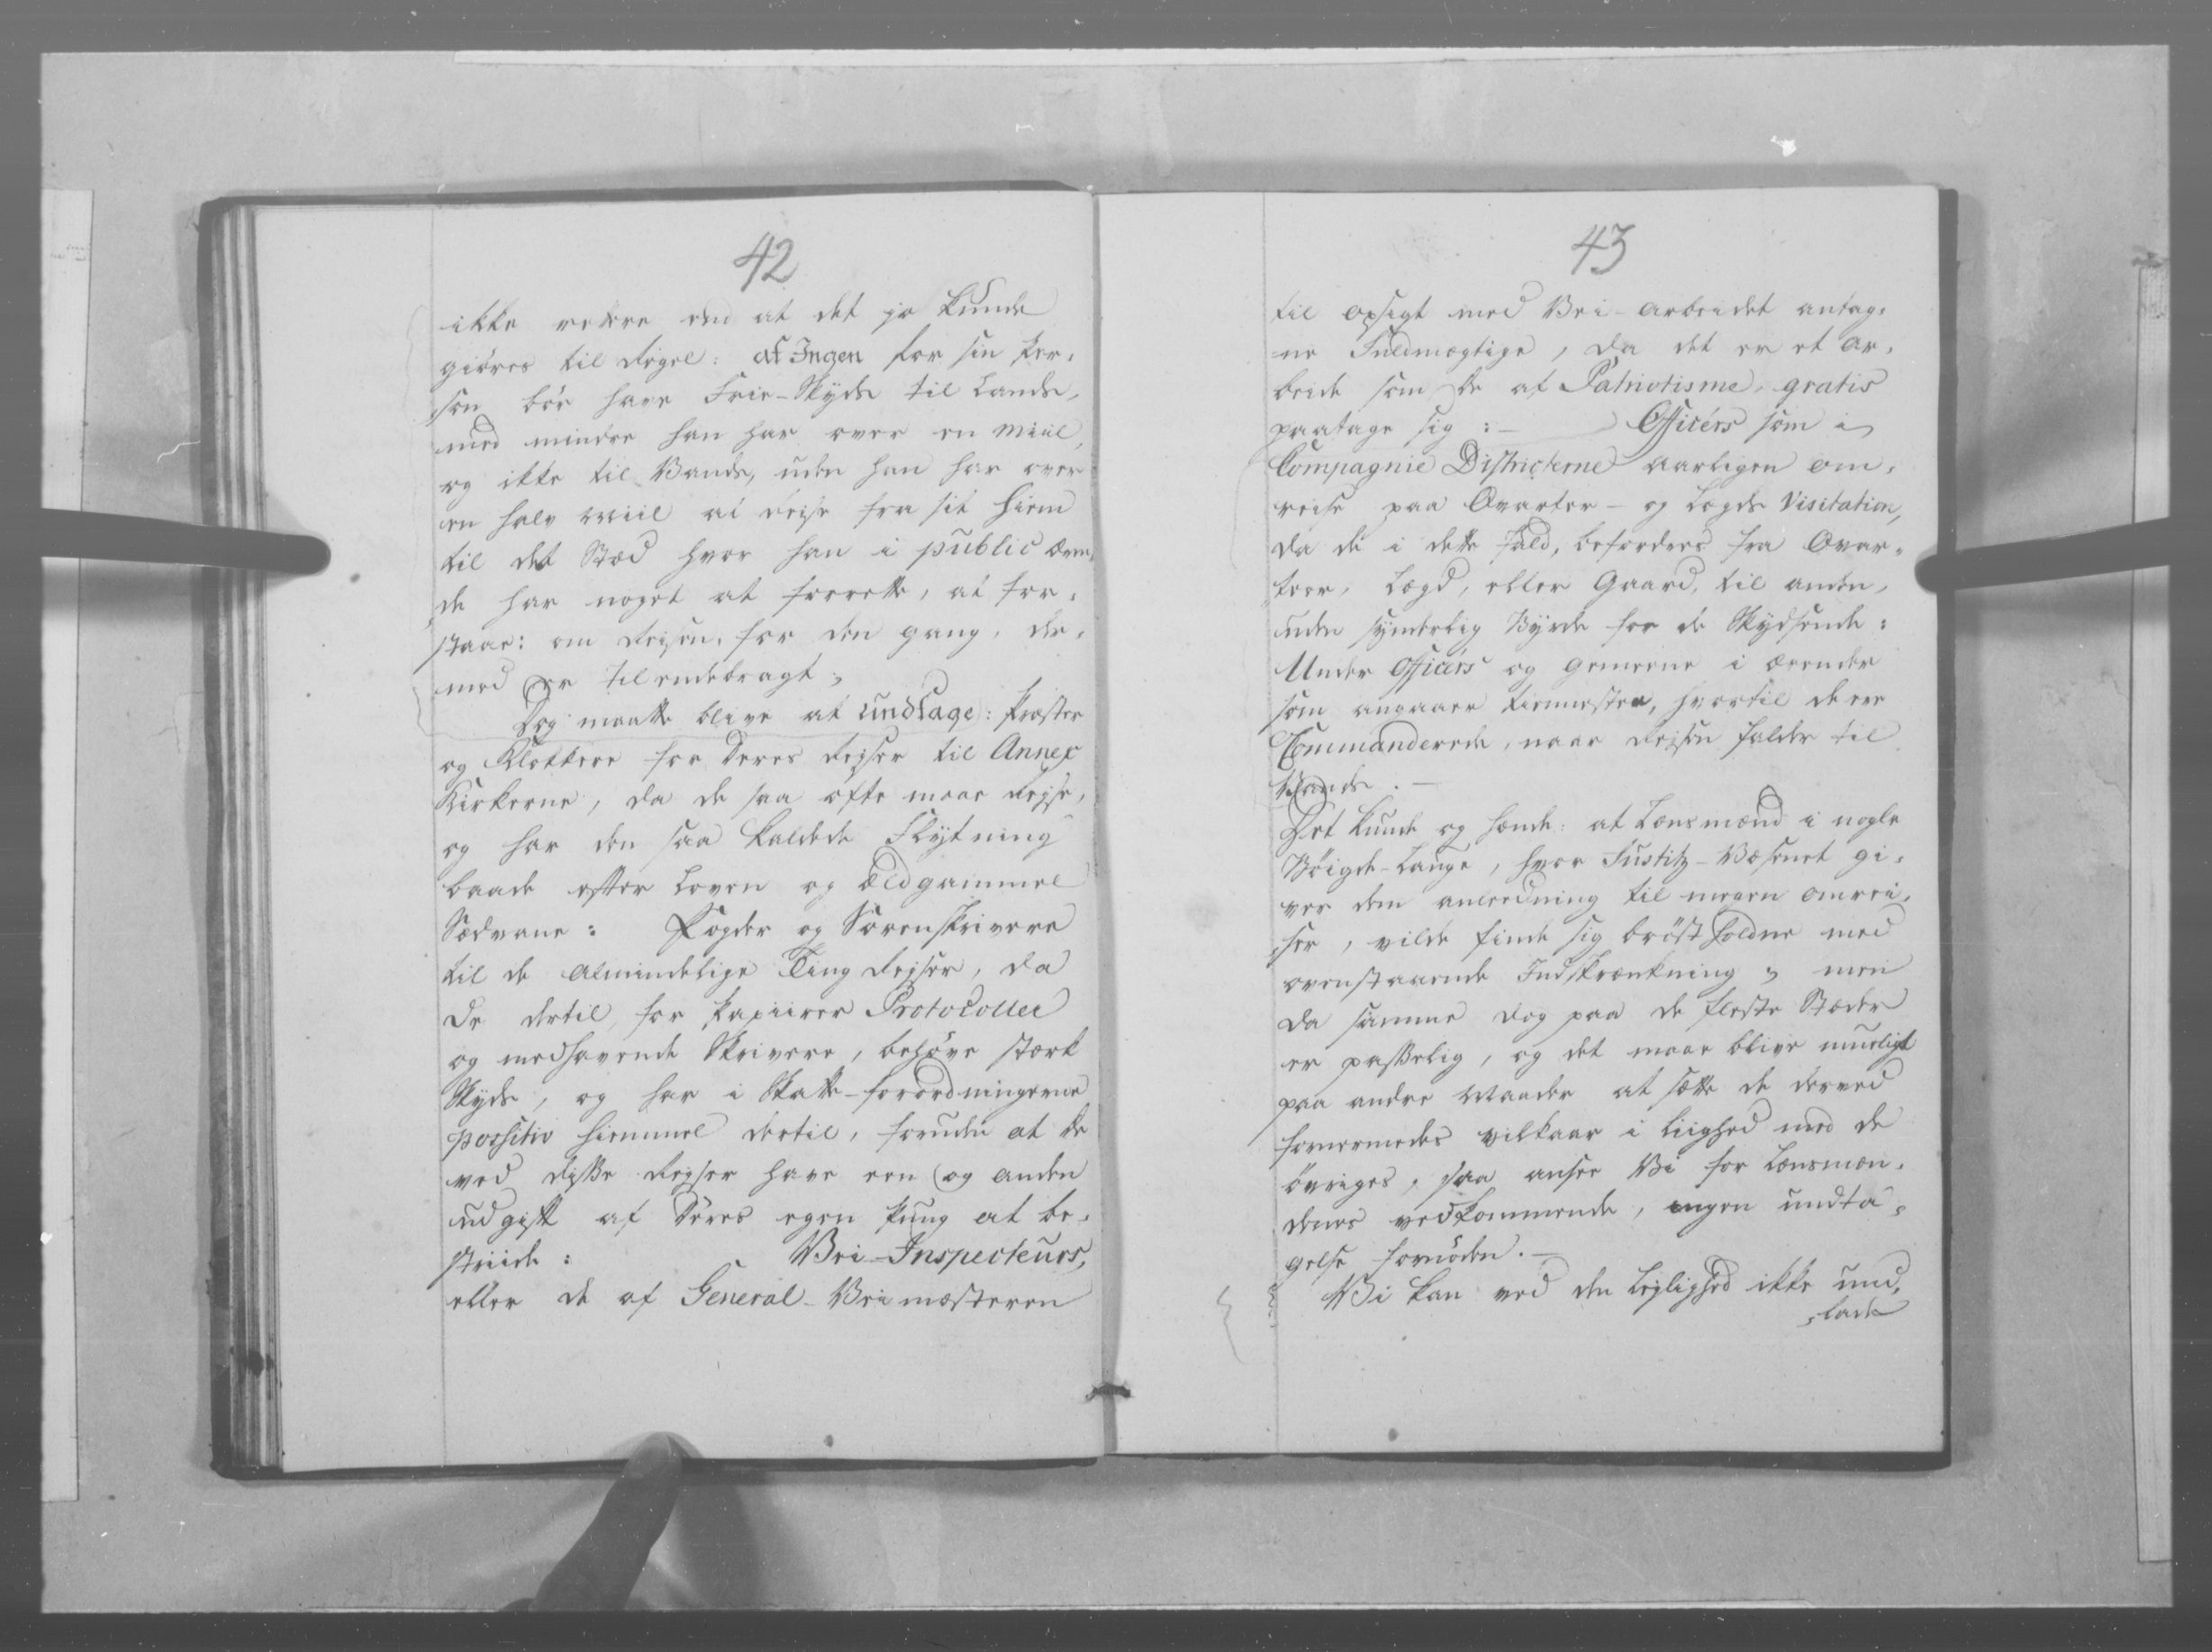 42
ikke rettere end at det jo kunde
giöres til Regel: at Ingen for sin Per-
son bör have Frie-Skyds til Lands,
med mindre han har over en Miil,
og ikke til Vands, uden han har over
en halv Miil at Reise fra sit Hiem
til det Stæd hvor han i public ærin-
de har noget at forrette, at for-
staae: om Reisen, for den gang, der-
med er tilendebragt;
Dog maatte blive at undtage: Præster
og Klokkere for Deres Reiser til Annex
Kirkerne, da de saa ofte maae Reise,
og har den saa kaldede Flÿtning
baade efter Loven og ældgammel
Sædvane: Fogder og Sorenskrivere
til de almindelige Ting Reiser, da
De dertil, for Papiirer Protocoller
og medhavende Skrivere, behöve stærk
Skyds, og har i Skatte-forordningerne
positiv hiemmel dertil, foruden at de
ved disse Reiser have een og anden
udgift af Deres egen Pung at be-
striide: Vei-Inspecteurs,
eller de af General-Veimæsteren
43
til opsigt med Vei-arbeidet antag-
ne Fuldmægtige, da det er et Ar-
beide som de af Patriotisme, gratis
paatage sig:— Officérs som i
Compagnie Districterne aarligen om-
reise paa Qvarter- og Lægds Visitation,
da de i dette fald, befordres fra Qvar-
teer, Lægd, eller Gaard, til anden,
uden synderlig Byrde for de Skydsende:
Under Officérs og Gemeene i ærender
som angaaer tienesten, hvortil de ere
Commanderede, naar Reisen falder til
Vands.—
Det kunde og hænde: at Lensmænd i nogle
Böigde-Lauge, hvor Justitz-Væsenet gi-
ver dem anledning til megen omrei-
ser, vilde finde sig bröstholdne med
ovenstaaende Indskrænkning; men
da samme dog paa de fleste Stæder
er passelig, og det maae blive mueligt
paa andre Maader at sætte de derved
fornermedes vilkaar i Liighed med de
övriges, saa ansee Vi for Lænsmæn-
denes vedkommende, ingen undta-
gelse fornöden.—
Vi kan ved den Leilighed ikke und-
lade